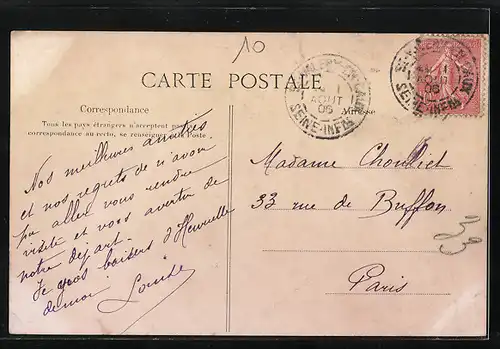 10
CARTE POSTALE
Correspondance
Tous les pays étrangers n'acceptent pas la
correspondance au recto, se renseigner à la Poste.
Adresse
AOUT
06
SEINE-INFRE
AOUT
06
SEINE-INFRE
Nos meilleures amitiés
et nos regrets de n'avoir
pu aller vous rendre
visite et vous avertir de
notre départ.
Je vous baisers d'
de moi Louise
Madame Chouliet
33 rue de Buffon
Paris